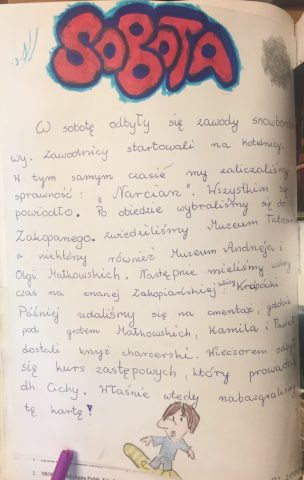 SOBOTA
W sobotę odbyły się zawody snowboardo
wy. Zawodnicy startowali na Kotelnicy.
W tym samym czasie my zaliczaliśmy
sprawność: "Narciarz". Wszystkim się
powiodło. Po obiedzie wybraliśmy się do
Zakopanego. zwiedziliśmy Muzeum Tatrzań
a niektóry również Muzeum Andrzeja i
Olgi Małkowskich. Następnie mieliśmy wolny
czas na znanej Zakopiańskiej ulicy Krupówki
Później udaliśmy się na cmentarz, gdzie
pod grobem Małkowskich, Kamila i Paweł
dostali krzyż charcerski. Wieczorem odbył
się kurs zastępowych, który prowadził
dh. Cichy. Właśnie wtedy nabazgraliśmy
tę kartę!